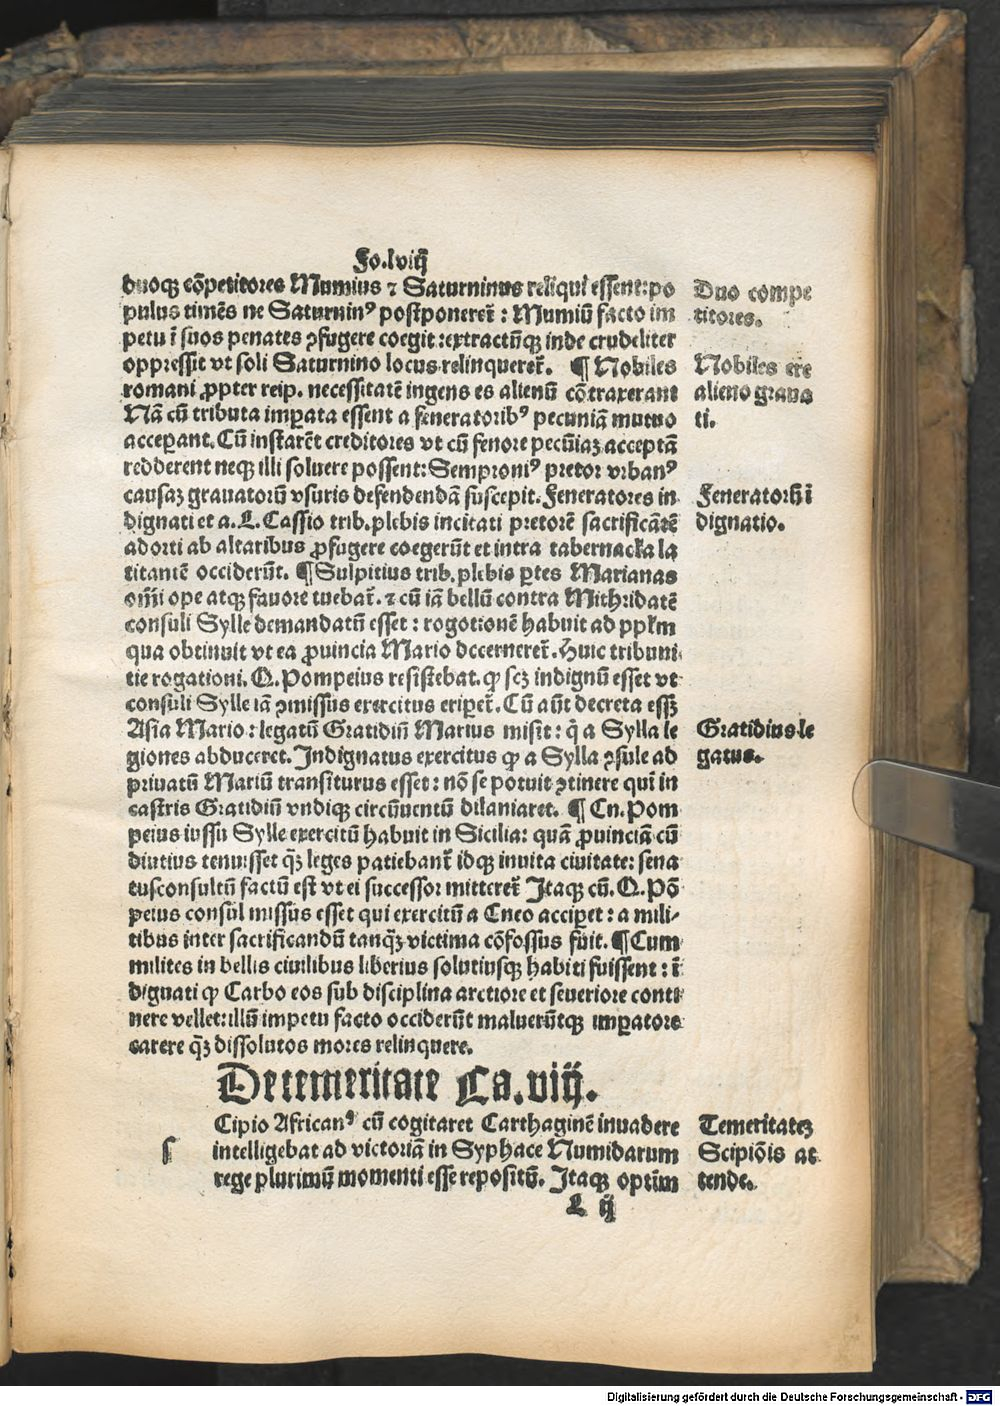 Fo.lviij
duoqꝫ cōpetitores Mumius ⁊ Saturninus reliqui essent: po
pulus timēs ne Saturninꝰ postponeret̄ : Mumiū facto im
petu ī suos penates ꝓfugere coegit: extractūqꝫ inde crudeliter
oppressit vt soli Saturnino locus relinqueret̄. ¶ Nobiles
romani ꝓpter reip. necessitatē ingens es alienū cōtraxerant
Nā cū tributa imꝑata essent a feneratoribꝰ pecuniā mutuo
acceꝑant. Cū instarēt creditores vt cū fenore pecūiaꝫ acceptā
redderent neqꝫ illi soluere possent: Semproniꝰ pretor vrbanꝰ
causaꝫ grauatorū vsuris defendendā suscepit. Feneratores in
dignati et a. L. Cassio trib. plebis incitati pretorē sacrificātē
adorti ab altaribus ꝓfugere coegerūt et intra tabernacka la
titantē occiderūt. ¶ Sulpitius trib. plebis ꝑtes Marianas
om̄i ope atqꝫ fauore tuebat̄. ⁊ cū iā bellū contra Mithridatē
consuli Sylle demandatū esset : rogotionē habuit ad ppl̄m
qua obtinuit vt ea ꝓuincia Mario dccerneret̄. Huic tribuni
tie rogationi. Q. Pompeius resistebat. ꝙ scꝫ indignū esset vt
consuli Sylle iā ꝓmissus exercitus eriꝑet̄. Cū aūt decreta essꝫ
Asia Mario : legatū Gratidiū Marius misit : q̄ a Sylla le
giones abduceret. Indignatus exercitus ꝙ a Sylla ꝯsule ad
priuatū Mariū transiturus esset : nō se potuit ꝯtinere quī in
castris Gratidiū vndiqꝫ circūuentū dilaniaret. ¶ Cn. Pom
peius iussu Sylle exercitū habuit in Sicilia: quā ꝓuinciā cū
diutius tenuisset q̄ꝫ leges patiebant̄ idqꝫ inuita ciuitate: sena
tusconsultū factū est vt ei successor mitteret̄ Itaqꝫ cū. Q. Pō
peius consul missus esset qui exercitū a Cneo acciꝑet : a mili⸗
tibus inter sacrificandū tanq̄ꝫ victima cōfossus fuit. ¶ Cum
milites in bellis ciuilibus liberius solutiusqꝫ habiti fuissent : ī
dignati ꝙ Carbo eos sub disciplina arctiore et seueriore conti
nere vellet: illū impetu facto occiderūt maluerūtqꝫ imꝑatore
carere q̄ꝫ dissolutos mores relinquere.
De temeritate Ca. viij.
Cipio Africanꝰ cū cogitaret Carthaginē inuadere
s intelligebat ad victoriā in Syphace Numidarum
rege plurimū momenti esse repositū. Itaqꝫ optim
L ij
Duo compe
titores.
Nobiles ere
alieno graua
ti.
Feneratorū ī
dignatio.
Gratidius le
gatus.
Temeritateꝫ
Scipiōis at
tende.
Digitalisierung gefördert durch die Deutsche Forschungsgemeinschaft - DFG